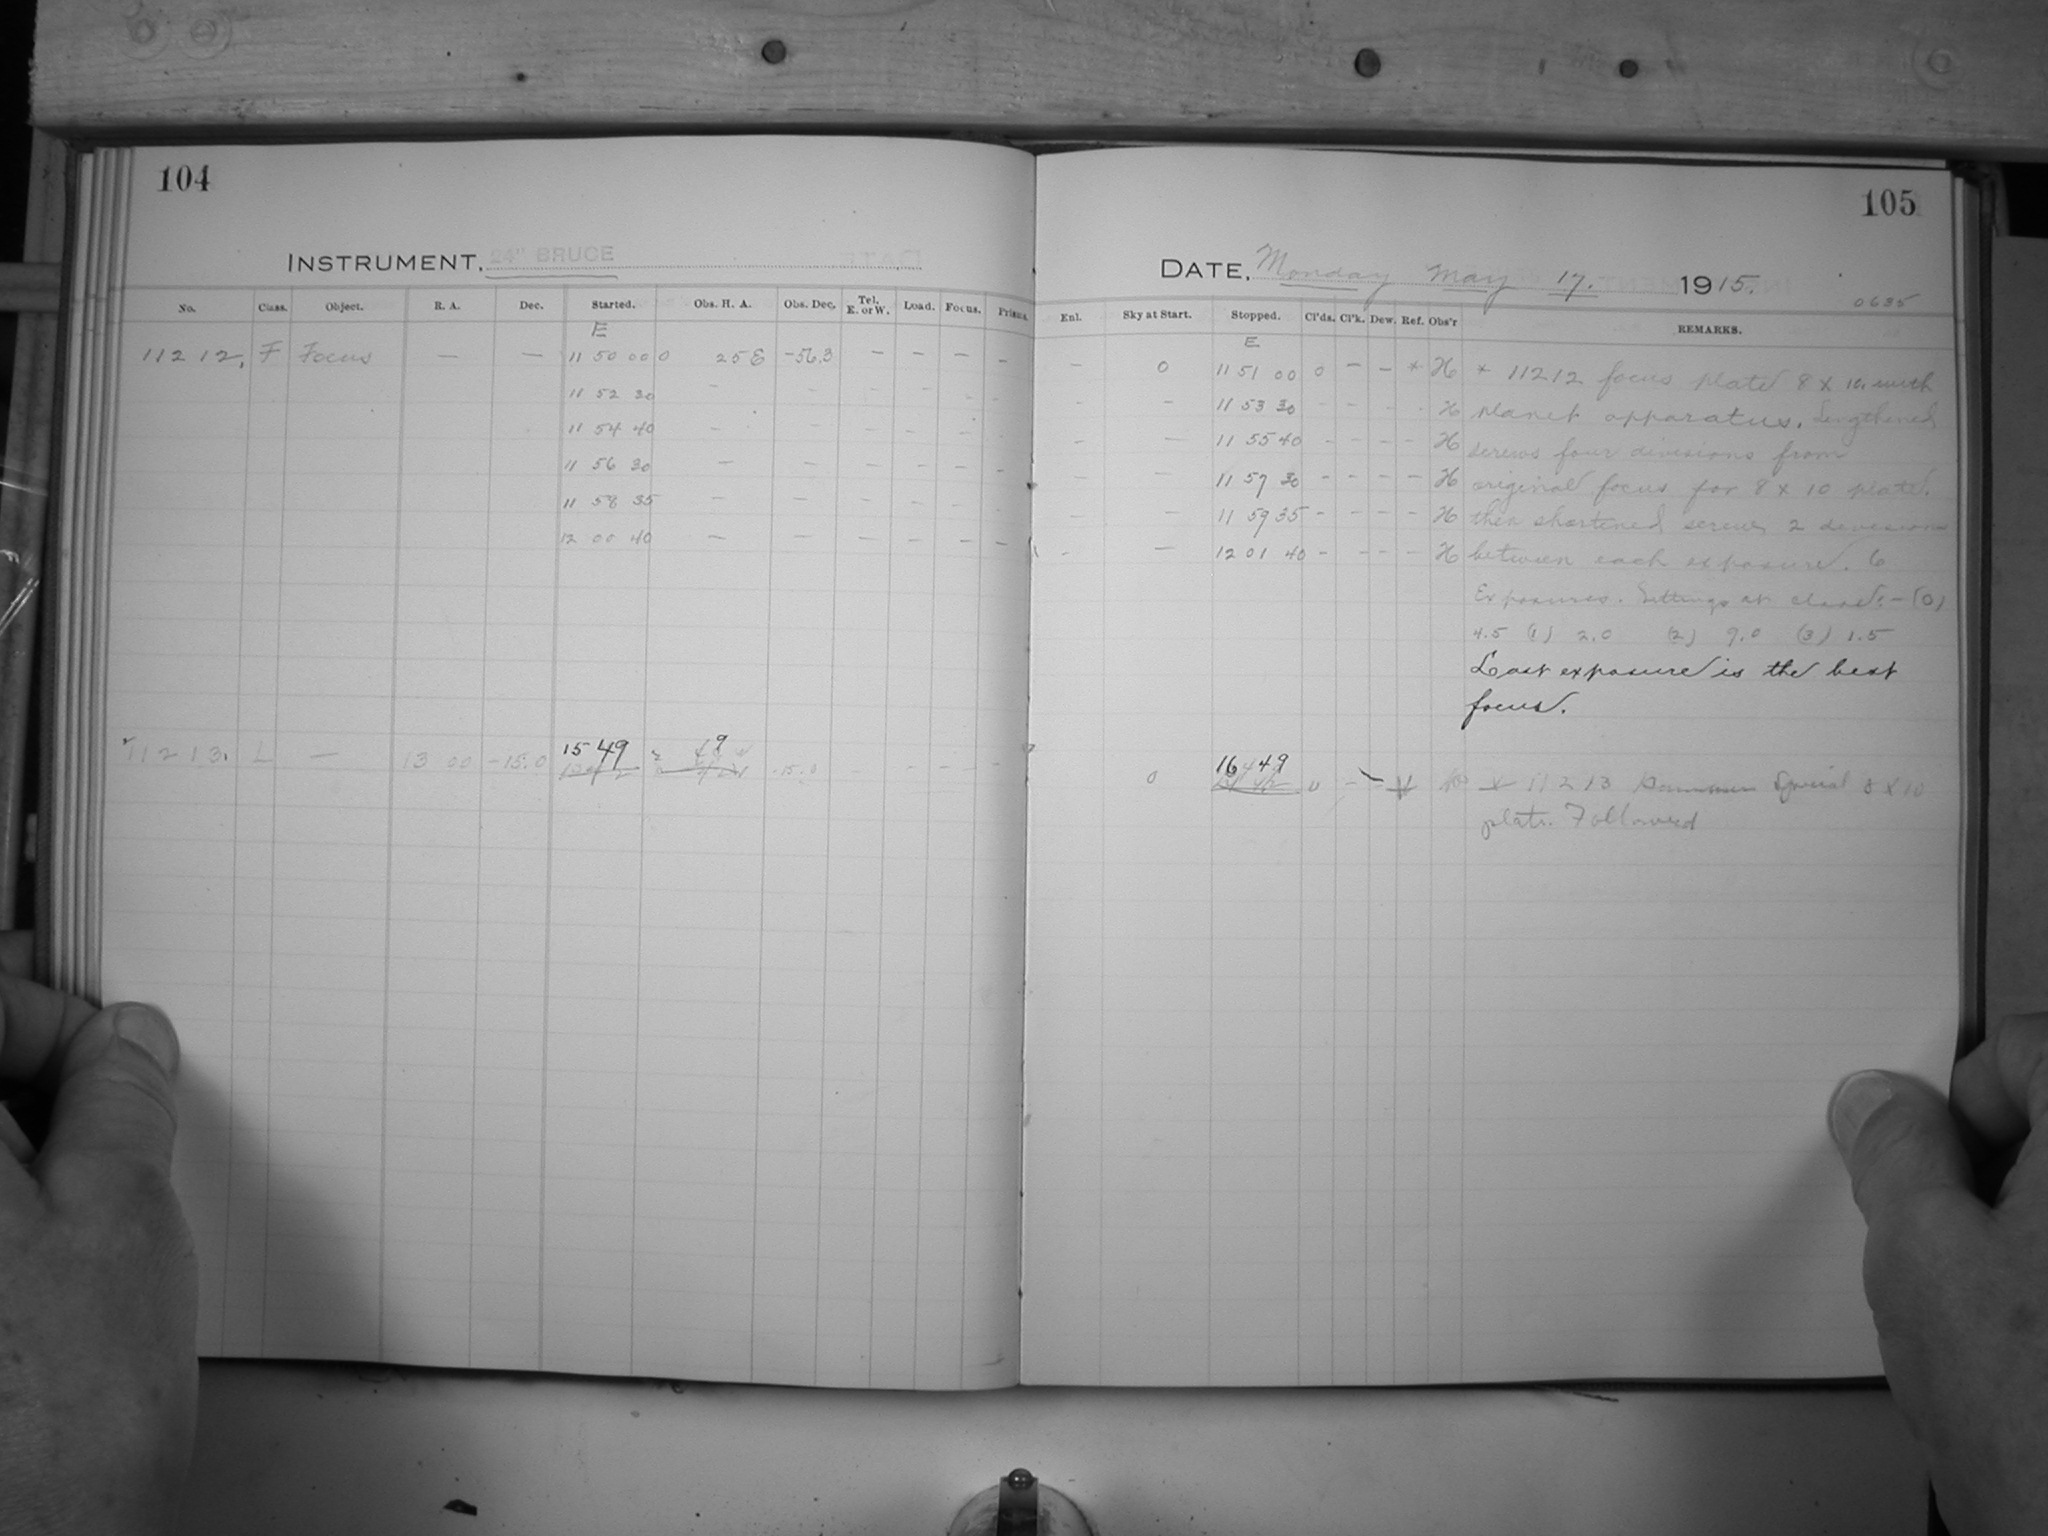 104
INSTRUMENT, 24" BRUCE
No. Class. Object. R. A. Dec. Started. Obs. H. A. Obs. Dec. Tel. E. or W. Load. Focus. Prisms.
E
11212. F Focus — — 11 50 00 0 25 E -56.3 — — — —
11 52 30 —
11 54 40 —
11 56 30 —
11 58 35 —
12 00 40 —
11213. L — 13 00 -15.0 15 49 2 49 -15.0
105
DATE, Monday May 17. 1915.
0635
Enl. Sky at Start. Stopped. Cl'ds. Cl'k. Dew. Ref. Obs'r REMARKS.
E
— 0 11 51 00 0 — — * H * 11212 focus plate 8 x 10. with
— 11 53 30 - - - - H planet apparatus. Lengthened
— 11 55 40 - - - - H screws four divisions from
— 11 57 30 - - - - H original focus for 8 x 10 plate.
— 11 59 35 - - - - H then shortened screws 2 divisions
— 12 01 40 - - - - H between each exposure. 6
Exposures. Settings at close:- (0)
4.5 (1) 2.0 (2) 9.0 (3) 1.5
Last exposure is the best
focus.
0 16 49 0 11213 Special 8 x 10
plate. Followed